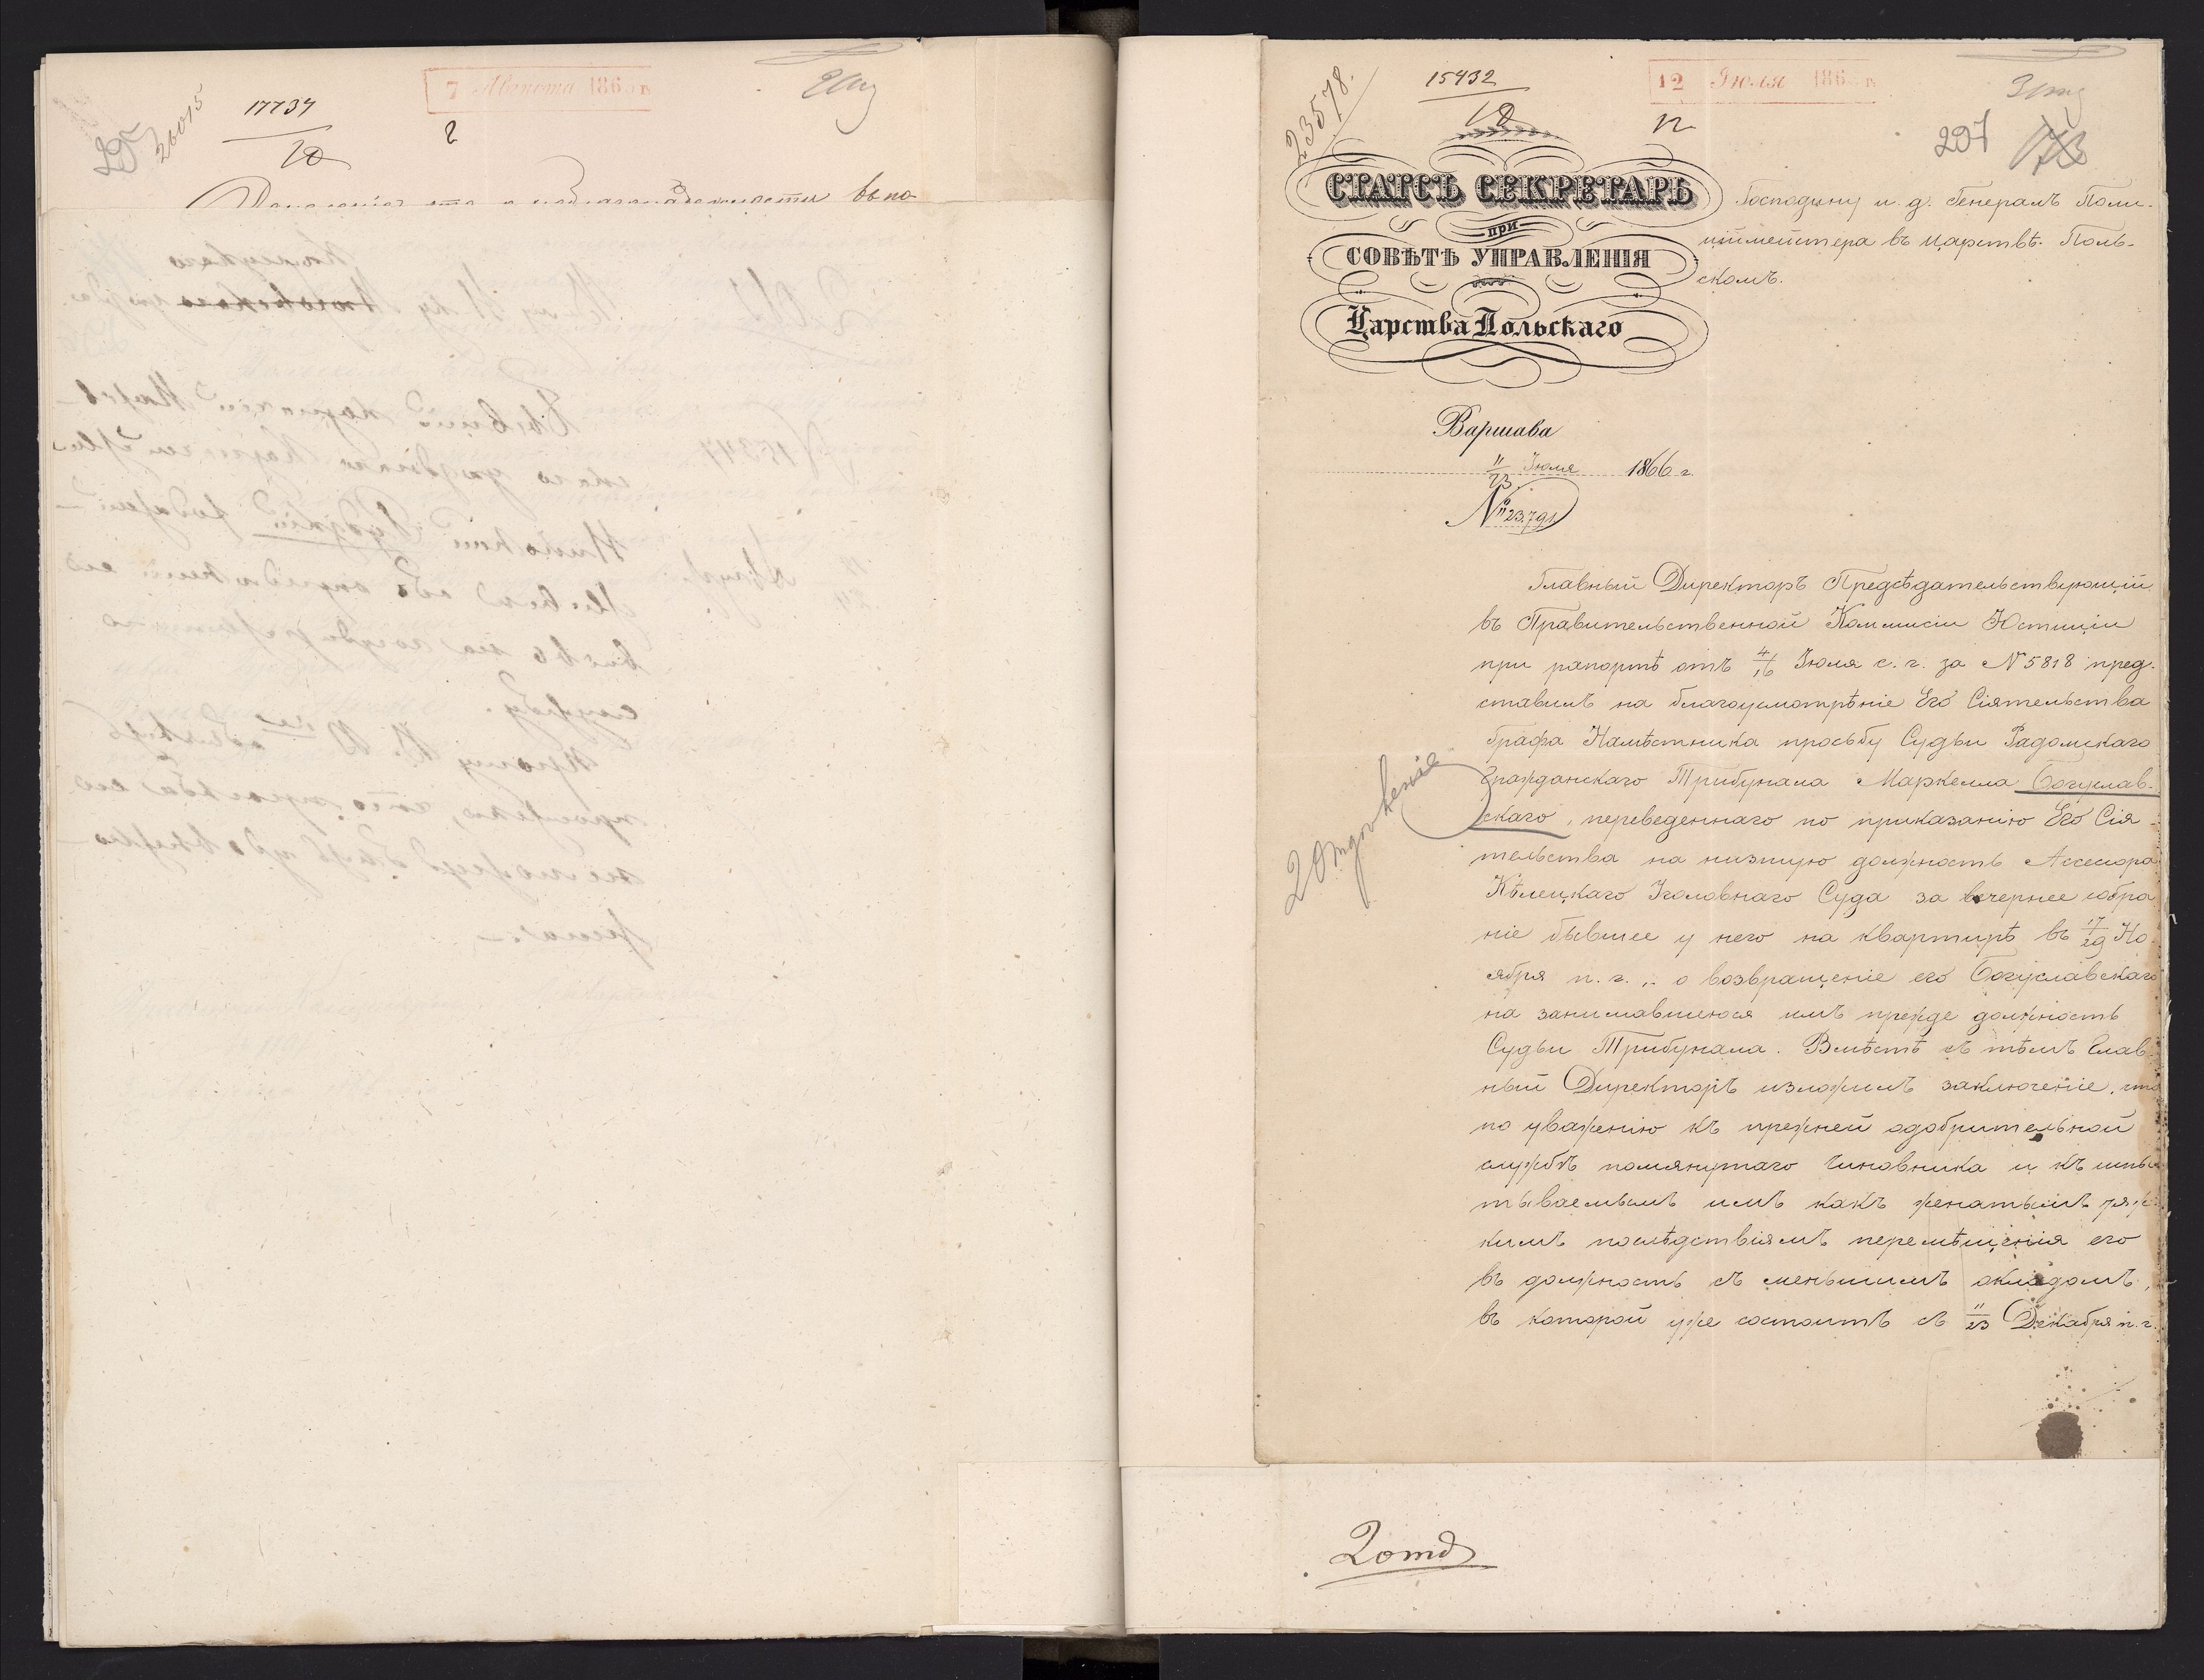 26015
17737
10
7 Августа 186
2
23578.
15432
10
12 Іюля 186
297
173
СТАТСЪ СЕКРЕТАРЬ
при
СОВѢТѢ УПРАВЛЕНІЯ
Царства Польскаго
Господину и. д. Генералъ Поли-
ціймейстера въ Царствѣ Поль-
скомъ.
Варшава
11/23 Іюля 1866 г.
№ 23.791
Главный Директоръ Предсѣдательствующій
въ Правительственной Коммисіи Юстиціи
при рапортѣ отъ 4/16 Іюля с. г. за № 5818 пред-
ставилъ на благоусмотрѣніе Его Сіятельства
Графа Намѣстника просьбу Судьи Радомскаго
Гражданскаго Трибунала Маркелла Богуслав-
скаго, переведеннаго по приказанію Его Сія-
тельства на низшую должность Ассесора
Кѣлецкаго Уголовнаго Суда за вечернее собра
ніе бывшее у него на квартирѣ въ 17/29 Но-
ября п. г., о возвращеніе его Богуславскаго
на занимавшеюся имъ прежде должность
Судьи Трибунала. Вмѣстѣ съ тѣмъ Глав-
ный Директоръ изложилъ заключеніе, что
по уваженію къ прежней одобрительной
службѣ помянутаго чиновника и къ испы
тываемымъ имъ какъ женатымъ тяж-
кимъ послѣдствіямъ перемѣщенія его
въ должность съ меньшимъ окладомъ,
въ которой уже состоитъ съ 11/23 Декабря п. г.
2 отд